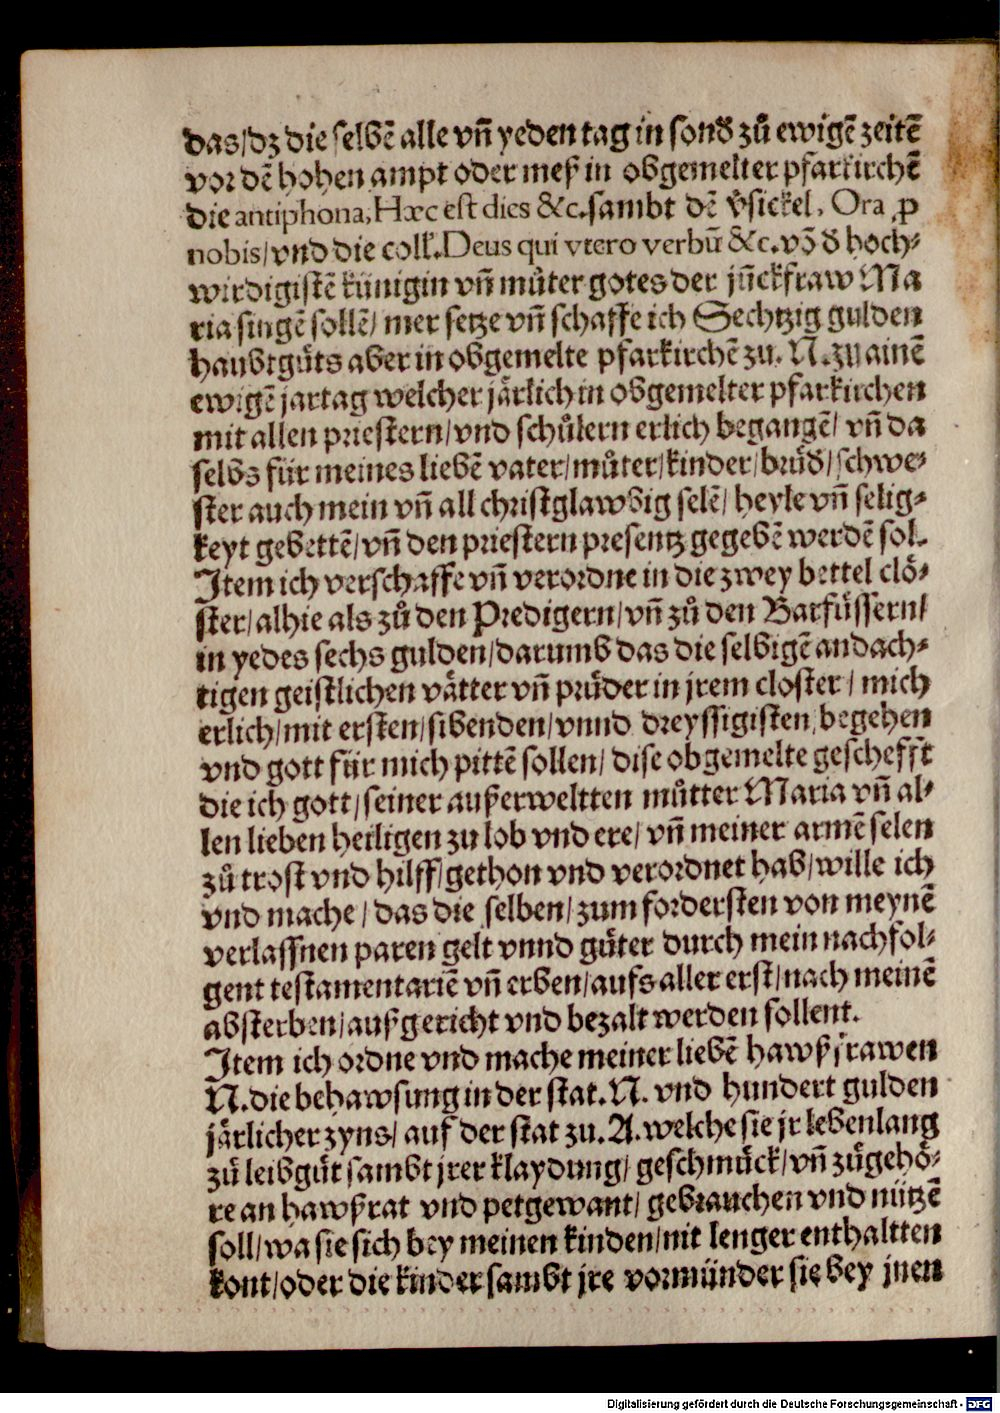 das/dz die selbẽ alle vñ yeden tag in sond̕ zů ewigẽ zeitẽ
vor dẽ hohen ampt oder meß in obgemelter pfarkirchẽ
die antiphona, Hæc est dies &c. sambt dẽ v̕sickel, Ora ꝓ
nobis/vnd die coll'. Deus qui vtero verbũ &c. võ d̕ hoch⸗
wirdigistẽ künigin vñ můter gotes der jũckfraw Ma
ria singẽ sollẽ/ mer setze vñ schaffe ich Sechtzig gulden
haubtgůts aber in obgemelte pfarkirchẽ zu. N. zu ainẽ
ewigẽ jartag welcher jårlich in obgemelter pfarkirchen
mit allen priestern/vnd schůlern erlich begangẽ/ vñ da
selbs für meines liebẽ vater/můter/kinder/brůd̕/schwe⸗
ster auch mein vñ all christglawbig selẽ/ heyle vñ selig⸗
keyt gebettẽ/vñ den priestern presentz gegebẽ werdẽ sol.
Item ich verschaffe vñ verordne in die zwey bettel clö⸗
ster/alhie als zů den Predigern/vñ zů den Barfůssern/
in yedes sechs gulden/darumb das die selbigẽ andach⸗
tigen geistlichen våtter vñ průder in jrem closter/ mich
erlich/mit ersten/sibenden/vnnd dreyssigisten/begehen
vnd gott für mich pittẽ sollen/ dise obgemelte geschefft
die ich gott/seiner außerweltten můtter Maria vñ al⸗
len lieben heiligen zu lob vnd ere/ vñ meiner armẽ selen
zů trost vnd hilff/gethon vnd verordnet hab/wille ich
vnd mache/ das die selben/zum fordersten von meynẽ
verlassnen paren gelt vnnd gůter durch mein nachfol⸗
gent testamentariẽ vñ erben/aufs aller erst/nach meinẽ
absterben/außgericht vnd bezalt werden sollent.
Item ich ordne vnd mache meiner liebẽ hawßfrawen
N. die behawsung in der stat. N. vnd hundert gulden
jårlicher zyns/ auf der stat zu. A. welche sie jr lebenlang
zů leibgůt sambt jrer klaydung/ geschmůck/vñ zůgehö⸗
re an hawßrat vnd petgewant/ gebrauchen vnd nützẽ
soll/wa sie sich bey meinen kinden/nit lenger enthaltten
kont/oder die kinder sambt jre vormünder sie bey jnen
Digitalisierung gefördert durch die Deutsche Forschungsgemeinschaft - DFG